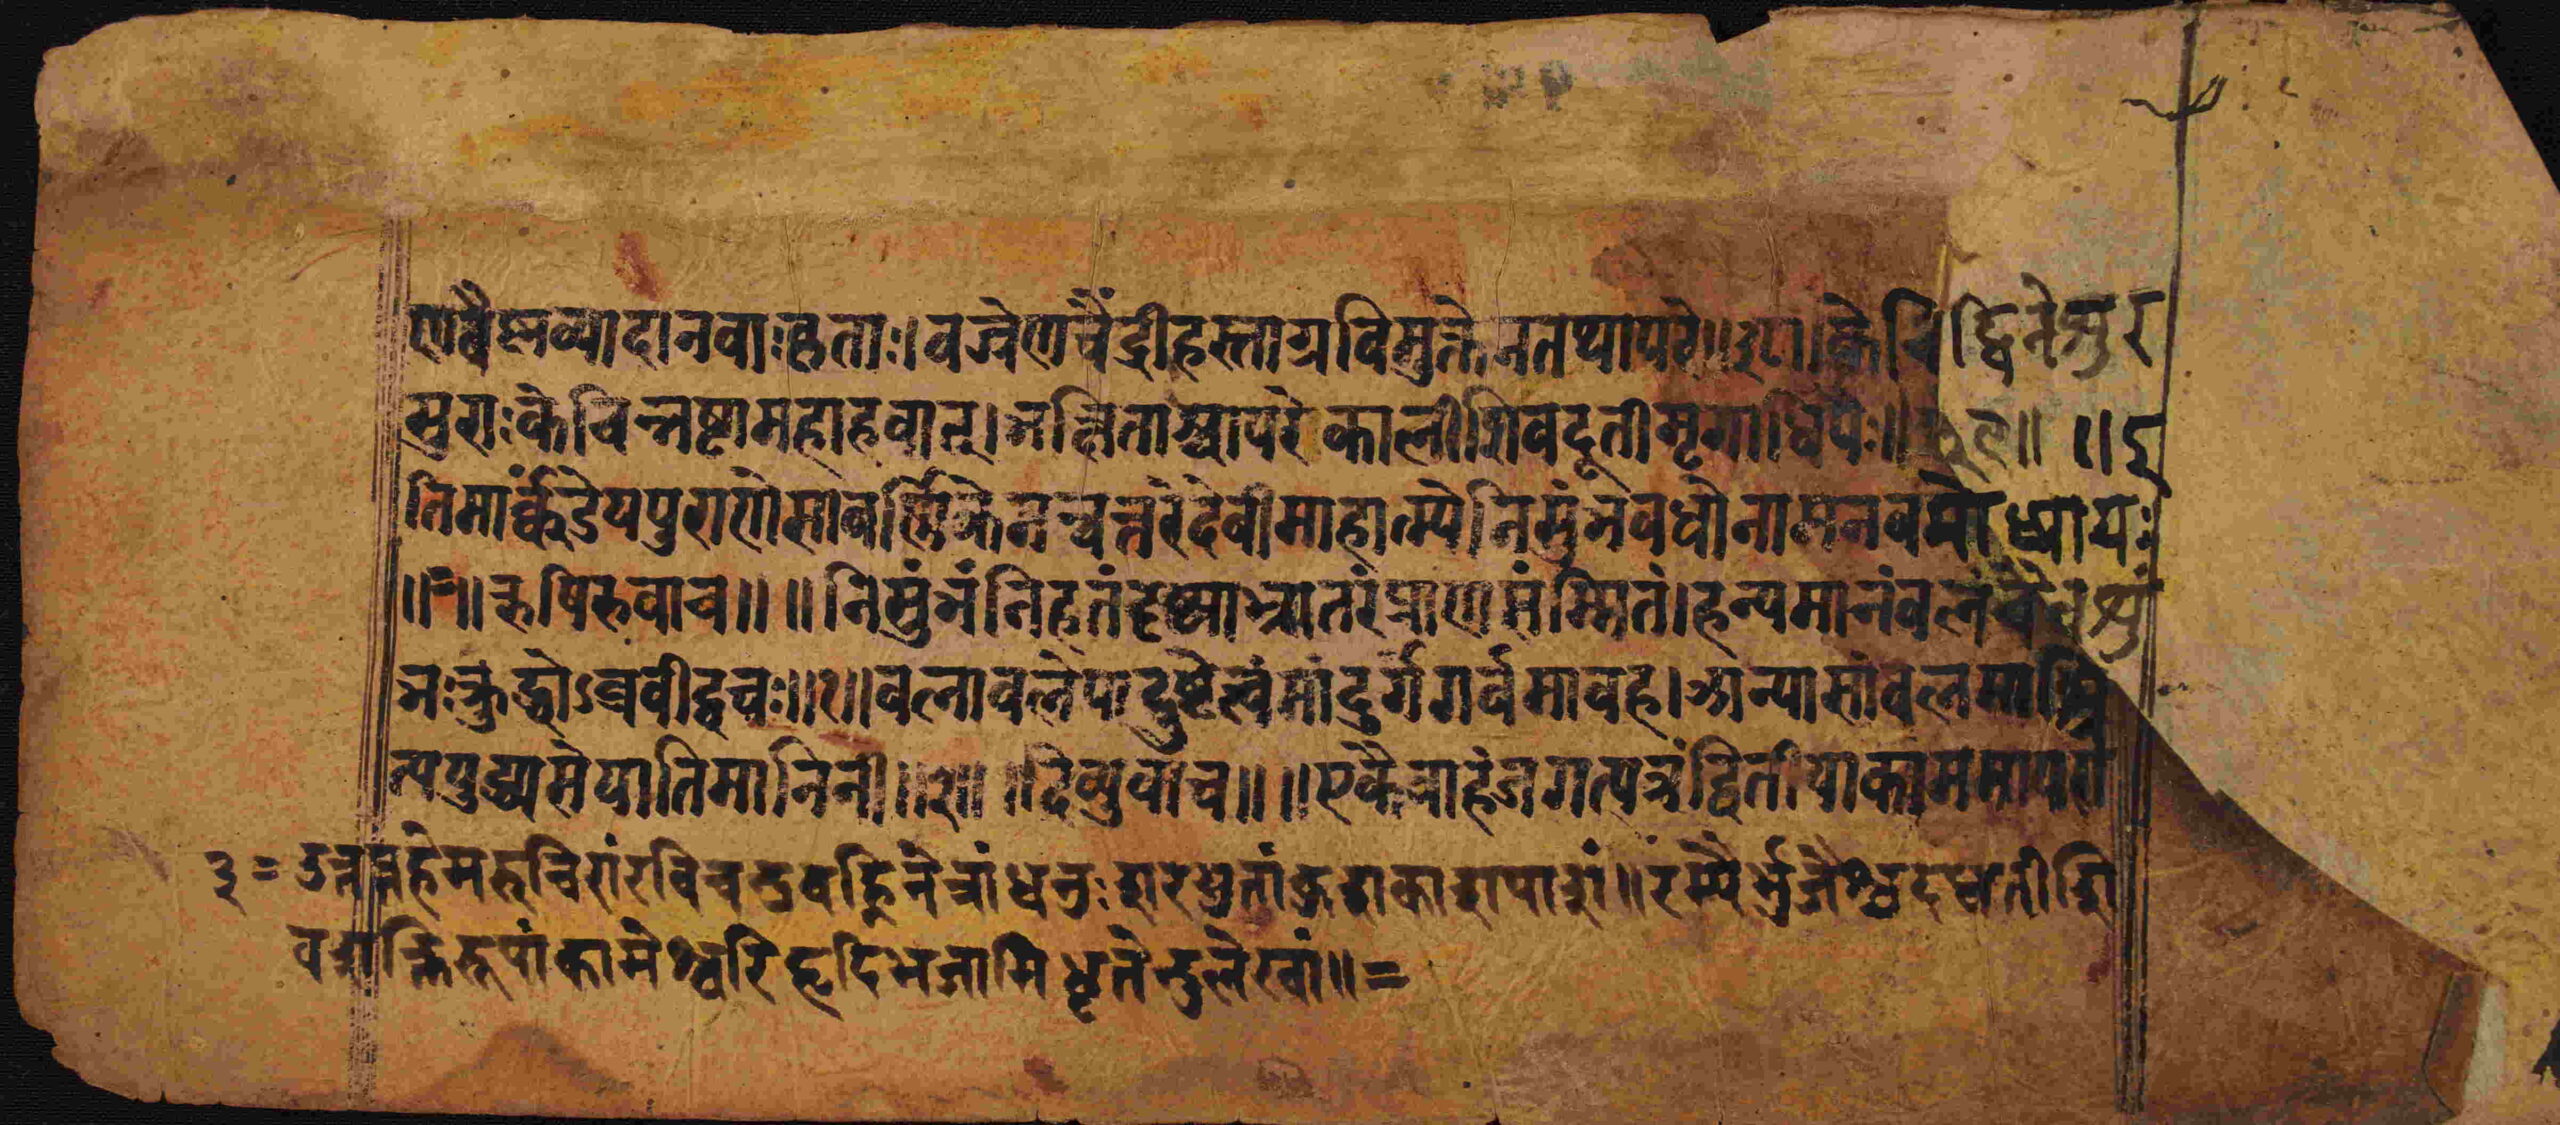 णवैष्णव्यादानवाःकृताः।वज्रेणचैंद्रीहस्ताग्रविमुक्तेनतथापरे॥३८॥केचिद्विनेशुर
सुराःकेचिन्नष्टामहाहवात्।भक्षिताश्चापरेकालीशिवदूतीमृगाधिपैः॥३९॥ ॥इ
तिमार्कंडेयपुराणेसावर्णिकेमन्वन्तरेदेवीमाहात्म्येनिसुंभवधोनामनवमोध्यायः
॥९॥ऋषिरुवाच॥ ॥निसुंभंनिहतंदृष्ट्वाभ्रातरंप्राणसंम्मितं।हन्यमानंवलंचैवशुं
भःक्रुद्धोऽब्रवीद्वचः॥१॥वलावलेपाद्दुष्टेत्वंमांदुर्गेगर्वमावह।अन्यासांवलमाश्रि
त्ययुद्ध्यसेयातिमानिनी॥२॥ ॥देव्युवाच॥ ॥एकैवाहंजगत्यत्रंद्वितीयाकाममापरा
३=उत्तप्तहेमरुचिरांरविचन्द्रवह्निनेत्रांधनुःशरयुतांकुशाकाशपाशां॥रम्यैर्भुजैश्चदधतींशि
वशक्तिरूपांकामेश्वरिहृदिभजामिधृतेन्दुलेखां॥=